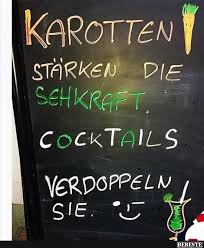 KAROTTEN
STÄRKEN DIE
SEHKRAFT.
COCKTAILS
VERDOPPELN
SIE. :-)
DEBESTE